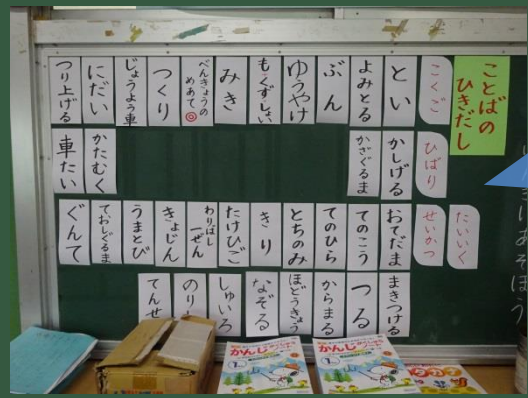 ことばの
ひきだし
こくご
とい
よみとる
ぶん
ゆうやけ
もくずしょい
みき
べんきょうの
めあて◎
つくり
じょうよう車
にだい
つり上げる
ひばり
かしげる
かざぐるま
かたむく
車たい
たいいく
せいかつ
おてだま
てのこう
てのひら
とちのみ
きり
たけひご
わりばし
一ぜん
きょじん
うまとび
ておしぐるま
ぐんて
まきつける
つる
からまる
ほどうきょう
なぞる
しゅいろ
のり
てんせ
かんじ
かんじ
カタカナ